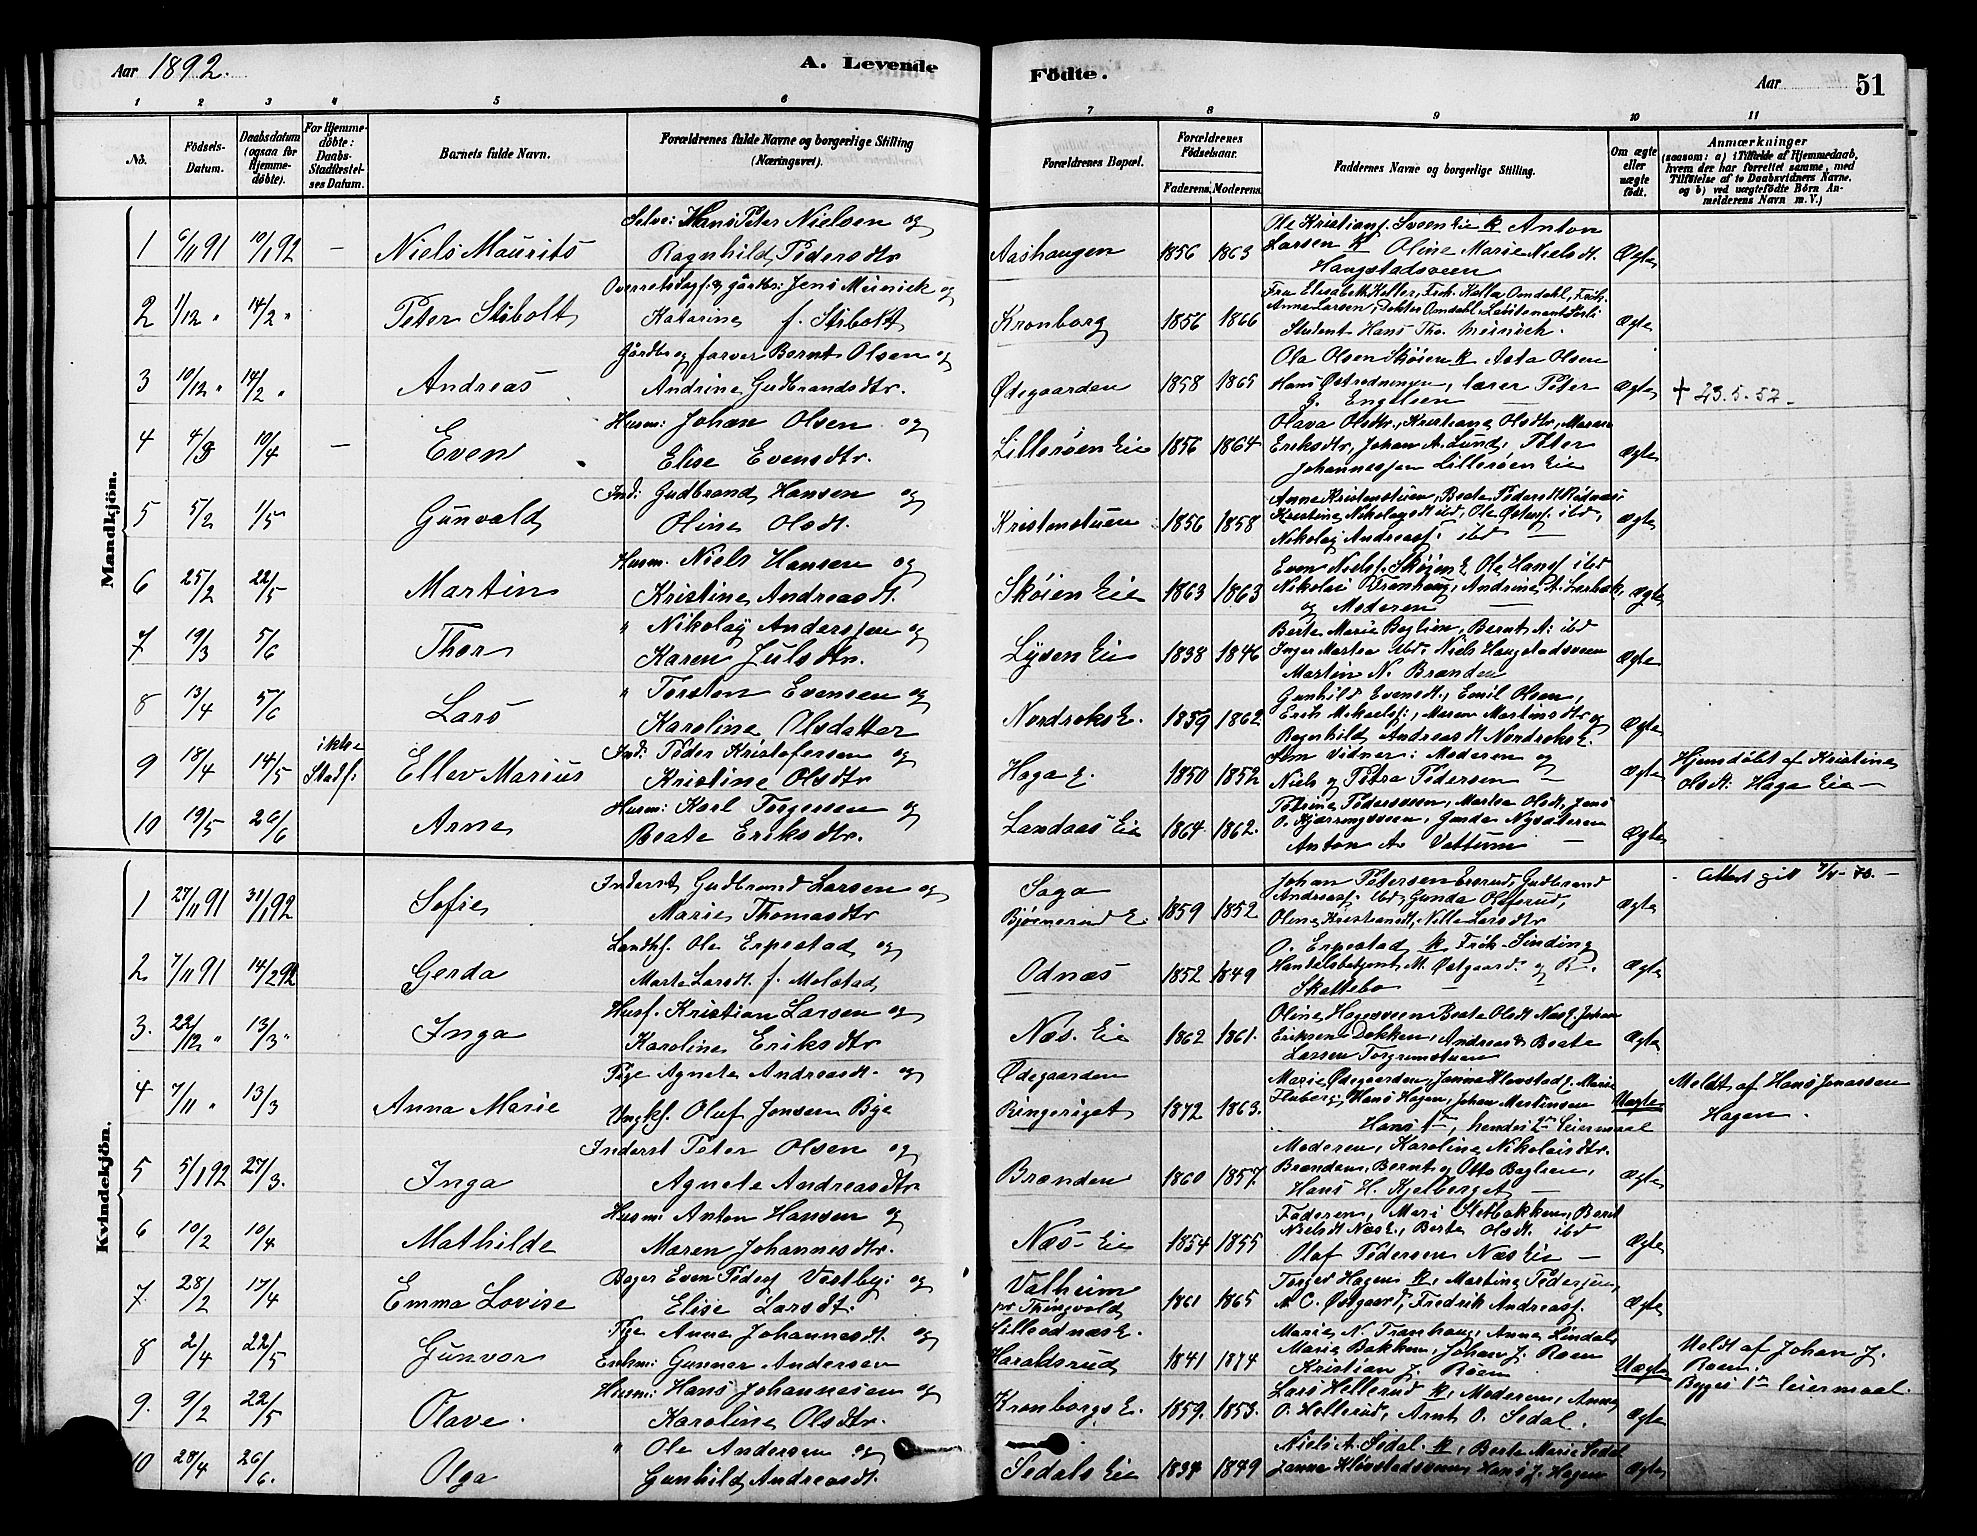 Aar 1892.
A. Levende
Födte.
Aar
51
1 2 3 4 5 6 7 8 9 10 11
No.
Födsels-Datum.
Daabsdatum (ogsaa for Hjemme-døbte).
For Hjemme-døbte: Daabs-Stadfæstel-ses Datum.
Barnets fulde Navn.
Forældrenes fulde Navne og borgerlige Stilling (Næringsvei).
Forældrenes Bopæl.
Forældrenes Födselsaar.
Faderens. Moderens.
Faddernes Navne og borgerlige Stilling.
Om ægte eller uægte födt.
Anmærkninger
(saasom: a) i Tilfælde af Hjemmedaab, hvem der har forrettet samme, med Tilföielse af to Daabsvidners Navne, og b) ved uægtefödte Börn Anmelderens Navn m. V.)
Mandkjön.
1 6/11 91 10/1 92 — Niels Maurits
Selve: Hans Peter Nielsen og
Ragnhild Pedersdtr
Aashaugen 1856 1863
Ole Kristians. Sveen Eie k Anton
Larsen k Oline Marie Nielsdt.
Haugstadsveen
Ægte
2 1/12 " 14/2 " Peter Stibolt
gårdbr: Jens Münick og
Katarine f. Stibolt
Kronborg 1856 1866
Fru Elisabeth Keller, Frk. Kalla Omdahl, Frk.
Anne Larsen, Doktor Omdahl, Løitenant Sørli
Student Hans Tho. Meinich.
Ægte
3 10/12 " 14/2 " Andreas
Gårdbr og farver Bernt Olsen og
Andrine Gudbrandsdtr.
Ødegaarden 1858 1865
Ola Olsen Skøien k Asta Olsen
Hans Østredningen, lærer Peter
G. Engelsen —
Ægte
† 23.5.52 -
4 4/3 10/4 — Even
Husm: Johan Olsen og
Elise Evensdtr.
Lillerøen Eie 1856 1864
Olava Olsdtr, Kristiane Olsdtr, Maren
Eriksdtr, Johan A. Lund, Peter
Johannessen Lillerøen Eie
Ægte
5 5/2 1/5 Gunvald
Ind: Gudbrand Hansen og
Oline Olsdt.
Kristenstuen 1856 1858
Anne Kristenstuen, Beate Pedersdt Rødnæs:
Kristine Nikolaysdt ibd, Ole Østens. ibd,
Nikolaj Andreass: ibd —
Ægte
6 25/2 22/5 Martin
Husm. Niels Hansen og
Kristine Andreasdt.
Skøien Eie 1863 1863
Even Niels. Skøien E. Ole Hans. ibd
Nikolai Tranhaug, Andrine A. Lærbak,
og Moderen —
Ægte
7 19/3 5/6 Thor
" Nikolaij Anderssen og
Karen Julsdtr.
Lysen Eie 1838 1846
Berte Marie Baglien, Bernt A: ibd
Inger Martea ibd, Niels Haugstadsveen
Martin N. Brænden
Ægte
8 13/4 5/6 Lars
" Torsten Evensen og
Karoline Olsdatter
Nordraks E. 1859 1862
Gunhild Evensdt., Emil Olsen,
Erik Mikaels:, Maren Martinsdtr og
Ragnhild Andreasdt Nordraks E.
Ægte
9 18/4 14/5 ikke Stadf: Ellev Marius
Ind: Peder Kristofersen og
Kristine Olsdtr
Haga E. 1850 1852
Som Vidner: Moderen og
Niels og Petra Pedersen —
Ægte
Hjemdøbt af Kristine
Olsdt: Haga Eie —
10 19/5 26/6 Arne
Husm: Karl Torgersen og
Beate Eriksdtr.
Landaas Eie 1864 1862.
Petrine Pedersveen, Martea Olsdt, Jens
O. Kjærringsveen, Gunda Nysæteren
Anton A. Vattum —
Ægte
Kvindekjön.
1 27/11 91 31/1 92 Sofie
Inderst Gudbrand Larsen og
Marie Thomasdtr
Saga
Bjørnerud E. 1859 1852
Johan Petersen Ererud, Gudbrand
Andreass: ibd, Gunda Olferud,
Oline Kristiansdt, Nille Larsdtr
Ægte
- Attest git 7/4-70. -
2 7/11 91 14/2 92 Gerda
Landh. Ole Erpestad og
Marte Larsdt. f. Molstad
Odnæs 1852 1849
O. Erpestad k Frk. Sinding
Handelsbetjent M. Østgaard. og
Skattebo —
Ægte
3. 22/12 " 13/3 " Inga
Husf. Kristian Larsen og
Karoline Eriksdtr
Næs. Eie 1862 1861.
Oline Hagesveen Beate Olsdt Næs E. Johan
Eriksen Dokken, Andreas & Beate
Larsen Torgrimstuen
Ægte
4 7/11 " 13/3 Anna Marie
Pige Agnete Andreasdt. og
Ungkf. Oluf Jonsen Bye
Ødegaarden
Ringeriget 1872 1863.
Marie Ødegaarden, Janna Klovstad, Marie
Fluberg, Hans Hagen, Johan Martinsen
Hans 1ste, hendes 2det Leiermaal
Uægte
Meldt af Hans Jonassen
Hagen.
5 5/1 92 27/3. Inga
Inderst Peter Olsen og
Agnete Andreasdtr.
Brænden 1860 1857.
Moderen, Karoline Nikolaisdtr.
Brænden, Bernt og Otto Baglien,
Hans H. Kjelberget —
Ægte
6 10/2 10/4 Mathilde
Husm: Anton Hansen og
Maren Johannesdtr.
Næs- Eie 1854 1855
Faderen, Mari Sletbakken, Bernt
Nielsdt Næs E., Berte Olsdt. ibd
Olaf Pedersen Næs Eie —
Ægte
7 28/2 17/4 Emma Lovise
Bager Even Peders. Vestby: og
Elise Larsdt:
Valheim
pr Thingvold 1861 1865
Torger Hagen k, Martine Pedersen,
M. C. Østgaard, Fredrik Andreass.
Ægte
8 2/4 22/5 Gunvor
Pige Anne Johannesdt. og
Enkm: Gunnar Andersen
Lilleodnæs E.
Haraldsrud 1841 1874
Marie N. Tranhaug, Anne Lindals
Marie Bakken, Johan J. Roen
Kristian J. Røen
Uægte
Meldt af Johan J.
Roen.
Begges 1ste leiermaal.
9. 9/2 22/5 Olave.
Husm: Hans Johannesen og
Karoline Olsdtr.
Kronborgs E. 1859. 1853.
Lars Hellerud k, Moderen, Anne
O. Hellerud, Arnt O. Sedal.
Ægte
10 28/4 26/6. Olga
" Ole Andersen og
Gunhild Andreasdt.
Sedals Eie 1834 1849
Niels A. Sedal. k, Berte Marie Sedal
Janna Klovstadsveen, Hans J. Hagen
Ægte